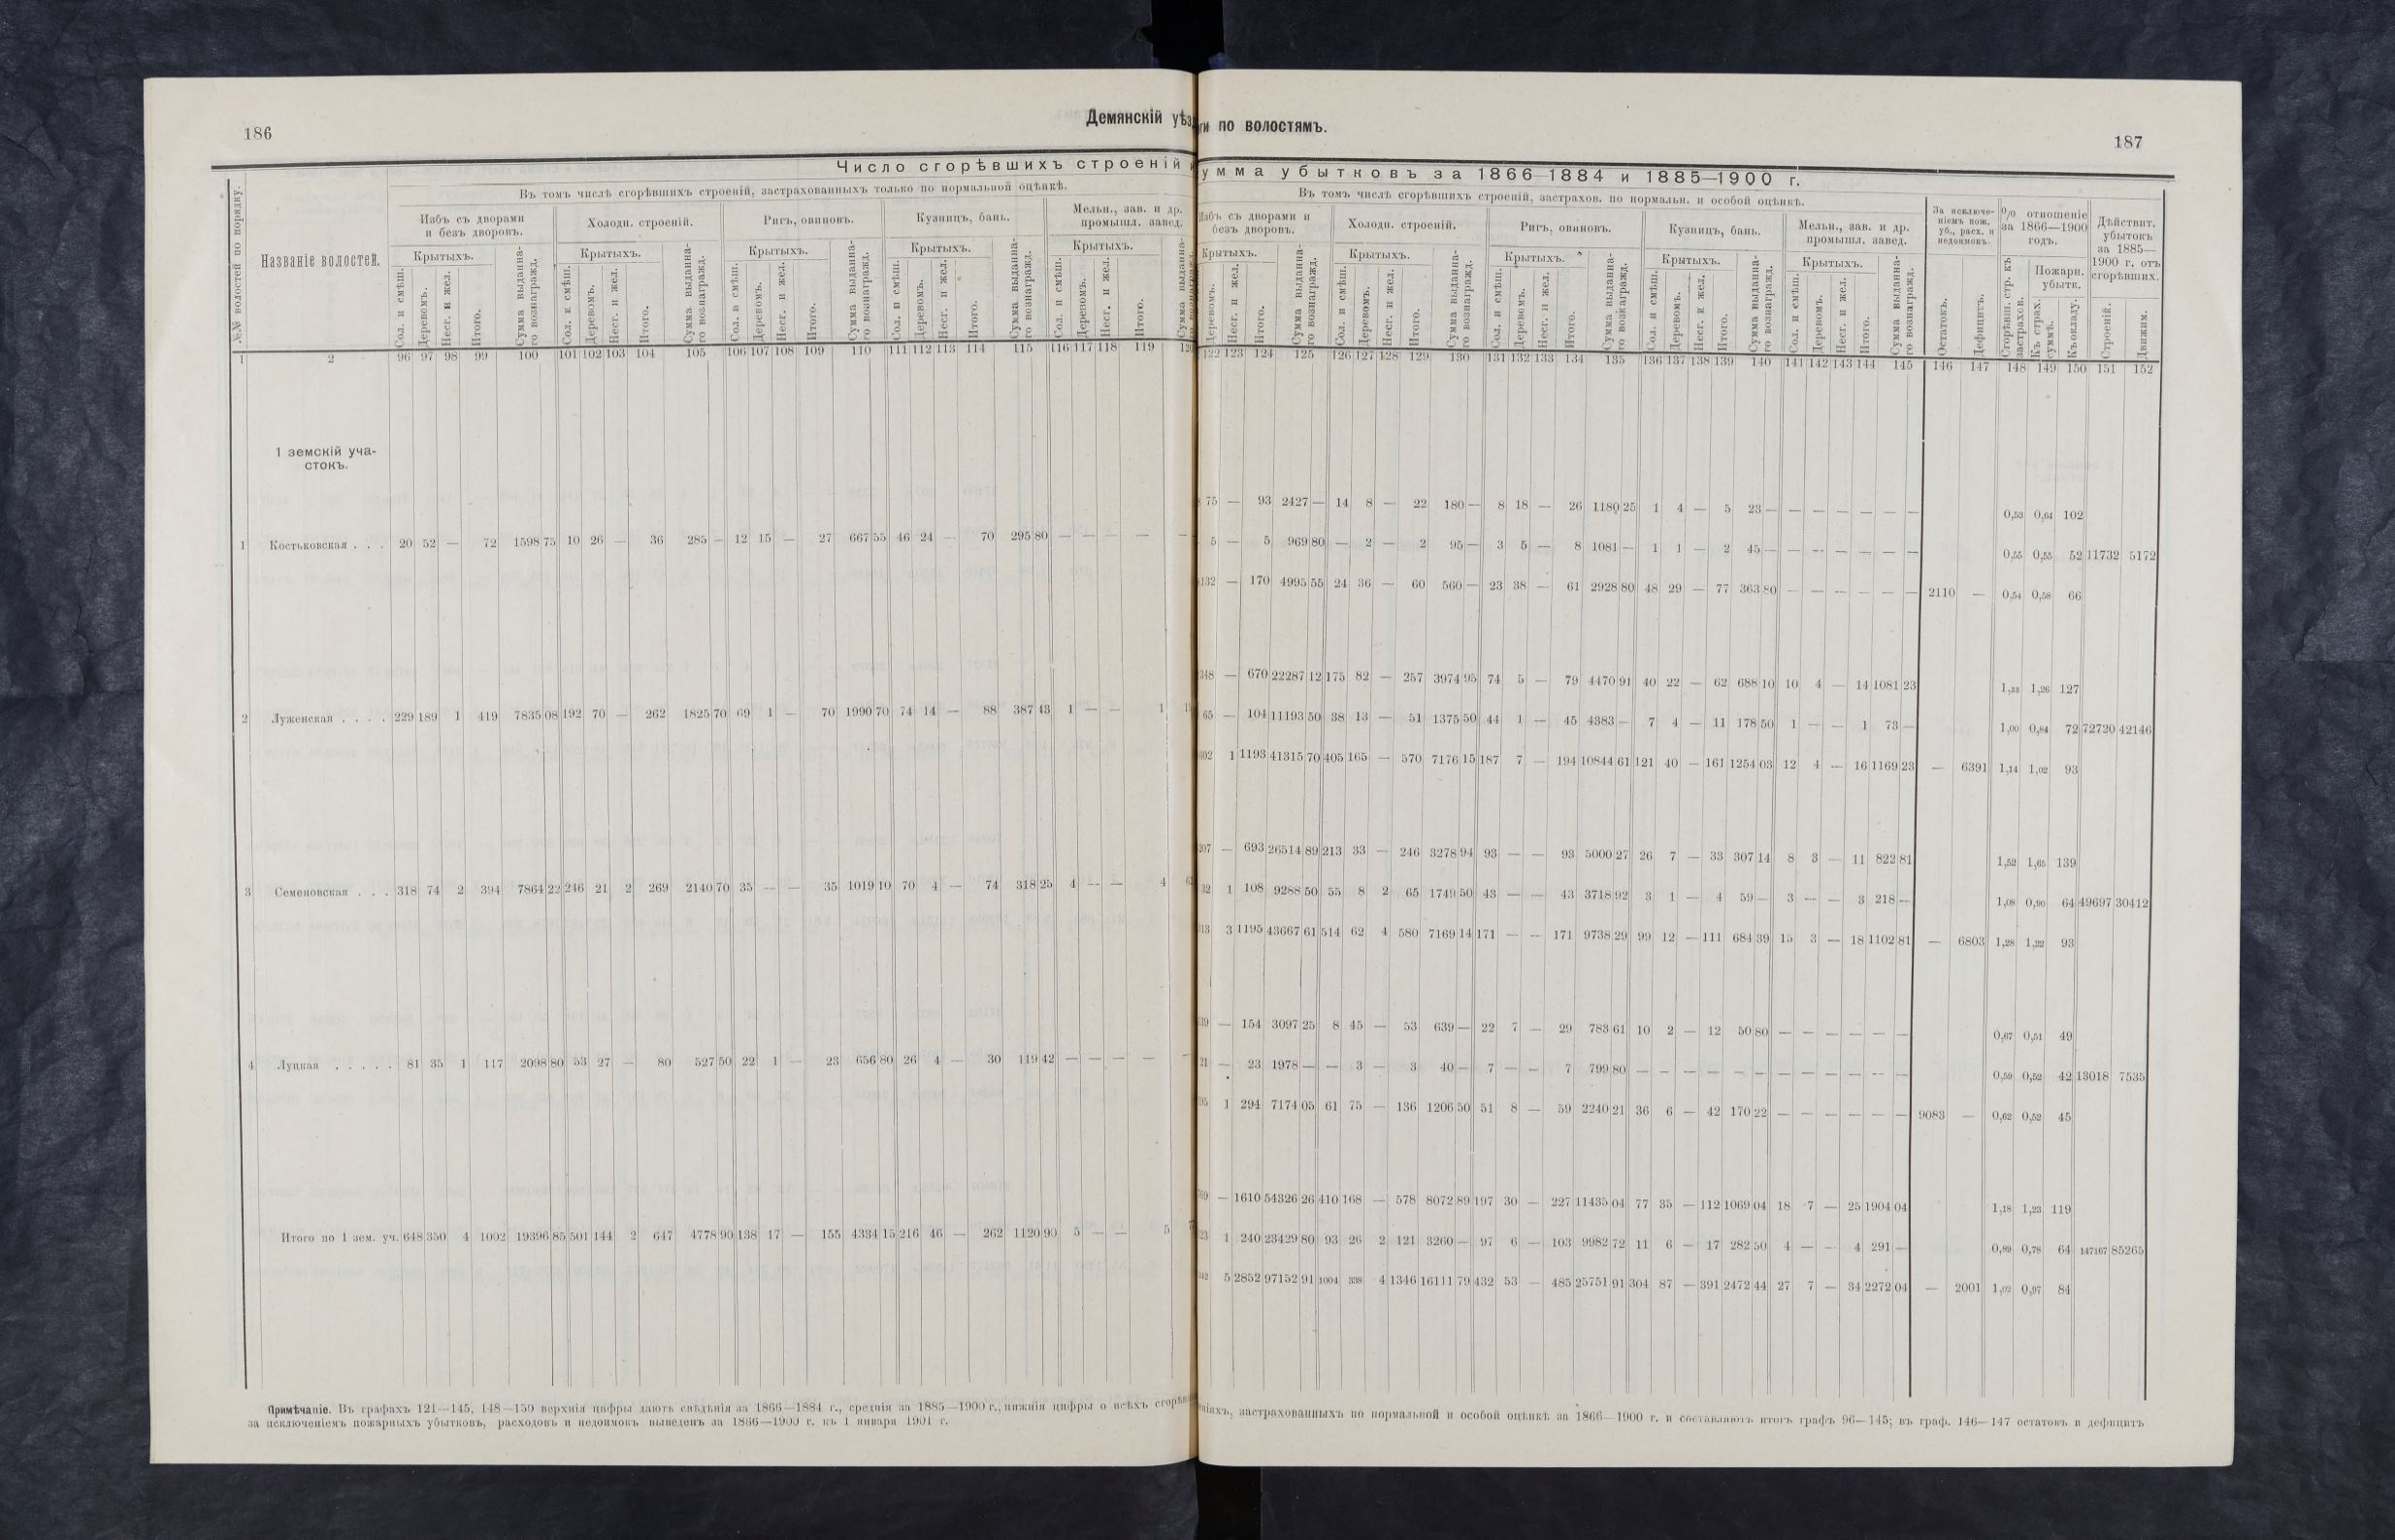 186
Демянскій уѣз
Число сгорѣвшихъ строеній
Въ томъ числѣ сгорѣвшихъ строеній, застрахованныхъ только по нормальной оцѣнкѣ.
№№ волостей по порядку.
Названіе волостей.
Избъ съ дворами и безъ дворовъ.
Холодн. строеній.
Ригъ, овиновъ.
Кузницъ, бань.
Мельн., зав. и др. промышл. завед.
Крытыхъ. Крытыхъ. Крытыхъ. Крытыхъ. Крытыхъ.
Сол. и смѣш. Деревомъ. Несг. и жел. Итого. Сумма выданна-го вознагражд.
1 2 96 97 98 99 100 101 102 103 104 105 106 107 108 109 110 111 112 113 114 115 116 117 118 119
1 земскій уча-
стокъ.
1 Костьковская . . . 20 52 — 72 1598 75 10 26 — 36 285 — 12 15 — 27 667 55 46 24 — 70 295 80 — — — — —
2 Луженская . . . . 229 189 1 419 7835 08 192 70 — 262 1825 70 69 1 — 70 1990 70 74 14 — 88 387 43 1 — — 1
3 Семеновская . . . 318 74 2 394 7864 22 246 21 2 269 2140 70 35 — — 35 1019 10 70 4 — 74 318 25 4 — — 4
4 Луцкая . . . . . 81 35 1 117 2098 80 53 27 — 80 527 50 22 1 — 23 656 80 26 4 — 30 119 42 — — — — —
Итого по 1 зем. уч. 648 350 4 1002 19396 85 501 144 2 647 4778 90 138 17 — 155 4334 15 216 46 — 262 1120 90 5 — — 5
Примѣчаніе. Въ графахъ 121—145, 148—150 верхнія цифры даютъ свѣдѣнія за 1866—1884 г., среднія за 1885—1900 г., нижнія цифры о всѣхъ
за исключеніемъ пожарныхъ убытковъ, расходовъ и недоимокъ выведенъ за 1866—1900 г. къ 1 января 1901 г.
ги по волостямъ.
187
умма убытковъ за 1866—1884 и 1885—1900 г.
Въ томъ числѣ сгорѣвшихъ строеній, застрахов. по нормальн. и особой оцѣнкѣ.
Избъ съ дворами и безъ дворовъ.
Холодн. строеній.
Ригъ, овиновъ.
Кузницъ, бань.
Мельн., зав. и др. промышл. завед.
За исключе-ніемъ пож. уб., расх. и недоимокъ.
% отношеніе за 1866—1900 годъ.
Дѣйствит. убытокъ за 1885—1900 г. отъ сгорѣвшихъ.
Крытыхъ. Крытыхъ. Крытыхъ. Крытыхъ. Крытыхъ.
Остатокъ. Дефицитъ. Сгорѣвш. стр. къ застрахов. Пожарн. убытк. Къ страх. суммѣ. Къ окладу. Строеній. Движим.
122 123 124 125 126 127 128 129 130 131 132 133 134 135 136 137 138 139 140 141 142 143 144 145 146 147 148 149 150 151 152
75 — 93 2427 — 14 8 — 22 180 — 8 18 — 26 1180 25 1 4 — 5 23 — — — — — — — 0,53 0,64 102
5 — 5 969 80 — 2 — 2 95 — 3 5 — 8 1081 — 1 1 — 2 45 — — — — — — — 0,55 0,55 52 11732 5172
132 — 170 4995 55 24 36 — 60 560 — 23 38 — 61 2928 80 48 29 — 77 363 80 — — — — — — 2110 — 0,54 0,58 66
348 — 670 22287 12 175 82 — 257 3974 95 74 5 — 79 4470 91 40 22 — 62 688 10 10 4 — 14 1081 23 1,26 127
65 — 104 11193 50 38 13 — 51 1375 50 44 1 — 45 4383 — 7 4 — 11 178 50 1 — — 1 73 — 1,00 0,84 72 72720 42146
602 1 1193 41315 70 405 165 — 570 7176 15 187 7 — 194 10844 61 121 40 — 161 1254 03 12 4 — 16 1169 23 — 6391 1,14 1,02 93
— 693 26514 89 213 33 — 246 3278 94 93 — — 93 5000 27 26 7 — 33 307 14 8 3 — 11 822 81 1,52 1,65 139
32 1 108 9288 50 55 8 2 65 1749 50 43 — — 43 3718 92 3 1 — 4 59 — 3 — — 3 218 — 1,08 0,90 64 49697 30412
3 1195 43667 61 514 62 4 580 7169 14 171 — — 171 9738 29 99 12 — 111 684 39 15 3 — 18 1102 81 — 6803 1,28 1,22 93
— 154 3097 25 8 45 — 53 639 — 22 7 — 29 783 61 10 2 — 12 50 80 — — — — — — 0,67 0,51 49
21 — 23 1978 — — 3 — 3 40 — 7 — — 7 799 80 — — — — — — — — — — — — 0,59 0,52 42 13018 7535
1 294 7174 05 61 75 — 136 1206 50 51 8 — 59 2240 21 36 6 — 42 170 22 — — — — — — 9083 — 0,62 0,52 45
— 1610 54326 26 410 168 — 578 8072 89 197 30 — 227 11435 04 77 35 — 112 1069 04 18 7 — 25 1904 04 1,18 1,23 119
1 240 23429 80 93 26 2 121 3260 — 97 6 — 103 9982 72 11 6 — 17 282 50 4 — — 4 291 — 0,89 0,78 64 147167 85265
5 2852 97152 91 1004 338 4 1346 16111 79 432 53 — 485 25751 91 304 87 — 391 2472 44 27 7 — 34 2272 04 — 2001 1,02 0,97 84
застрахованныхъ по нормальной и особой оцѣнкѣ за 1866—1900 г. и составляютъ итогъ графъ 96—145; въ граф. 146—147 остатокъ и дефицитъ